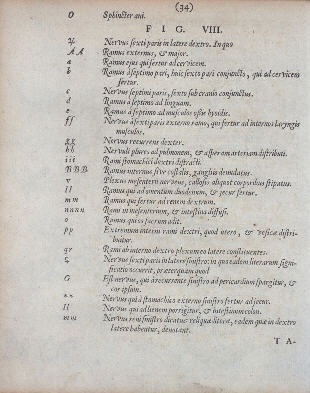 (34)
O Sphincter ani.
FIG. VIII.
Ψ Nervus sexti paris in latere dextro. In quo
AA Ramus externus, & major.
a Ramus ejus qui fertur ad cervicem.
b Ramus à septimo pari, huic sexto pari conjunctus, qui ad cervicem
fertur.
c Nervus septimi paris, sexto sub cranio conjunctus.
d Ramus à septimo ad linguam.
e Ramus à septimo ad musculos ossis hyoidis.
ff Nervus à sexti paris externo ramo, qui fertur ad internos laryngis
musculos.
gg Nervus recurrens dexter.
hh Nervuli plures ad pulmonem, & asperam arteriam distributi.
iii Rami stomachici dextri distracti.
BBB Ramus internus sive costalis, gangliis denudatus.
Plexus mesenterii nerveus, callosis aliquot corporibus stipatus.
ll Ramus qui ad omentum duodenum, & jecur fertur.
mm Ramus qui fertur ad renem dextrum.
nnnn Rami in mesenterium, & intestina diffusi.
o Ramus qui os sacrum adit.
pp Extremum interni rami dextri, quod utero, & vesicæ distri-
buitur.
qr Rami ab interno dextro plexum eo latere constituentes.
Nervus sexti paris in latere sinistro: in quo eadem literarum signi-
ficatio occurrit, præterquam quod
G Est nervus, qui à recurrente sinistro ad pericardium spargitur, &
cor ipsum.
** Nervus qui à stomachico externo sinistro fertur ad jecur.
ll Nervus qui ad lienem porrigitur, & intestinum colon.
mm Nervus reni sinistro dicatus: reliquæ literæ, eadem quæ in dextro
latere habentur, denotant.
TA-